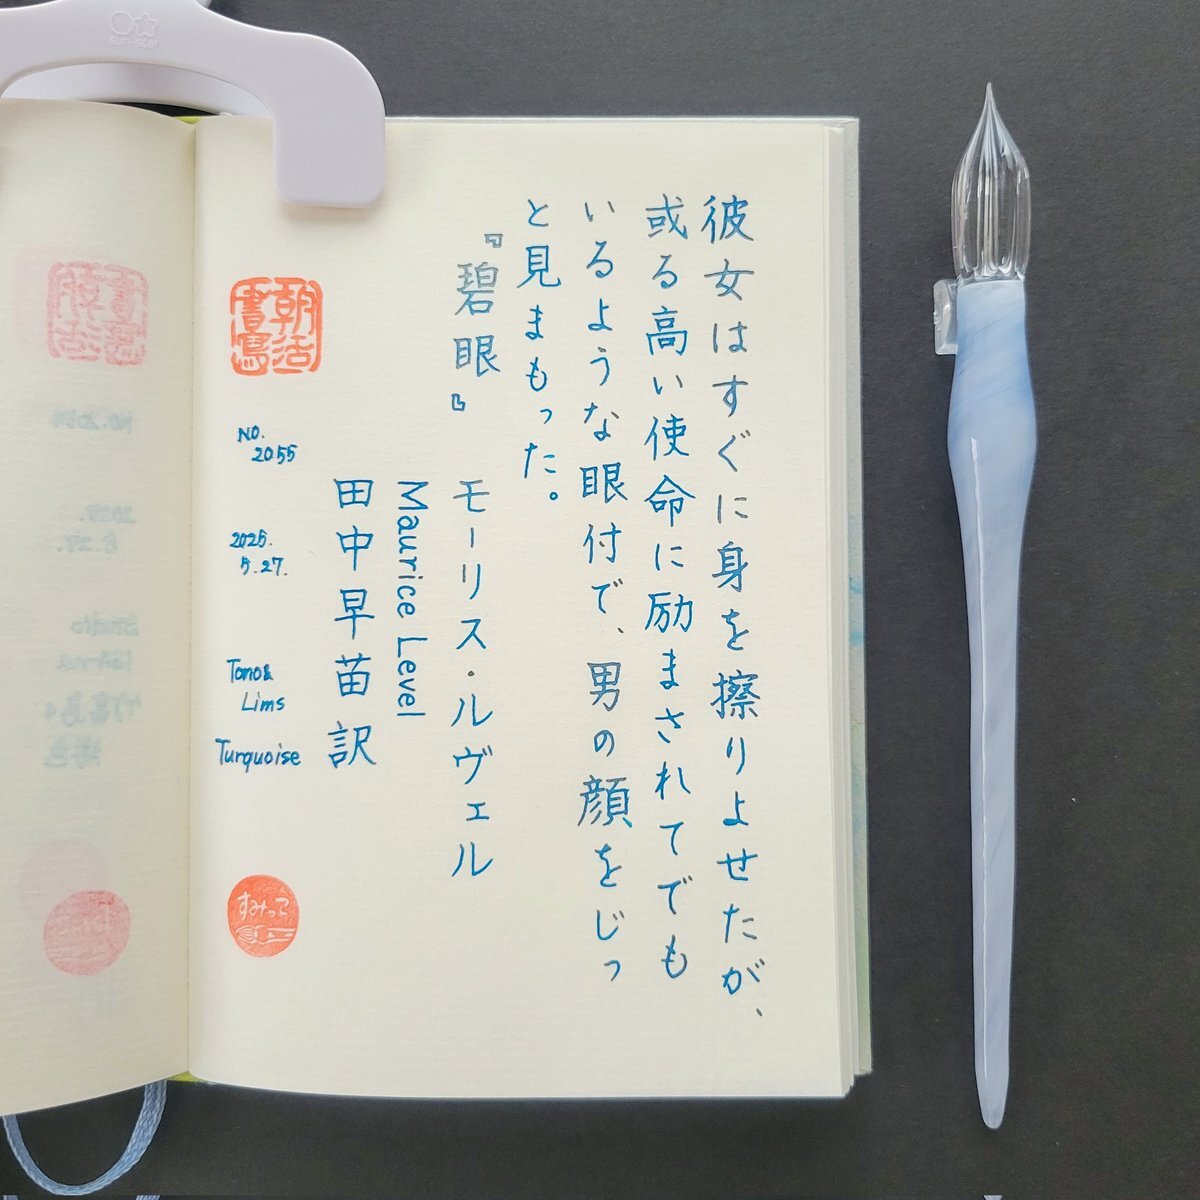 彼女はすぐに身を擦りよせたが、
或る高い使命に励まされてでも
いるような眼付で、男の顔をじっ
と見まもった。
『碧眼』
モーリス・ルヴェル
Maurice Level
田中早苗 訳
朝活
書寫
NO.
2055
2025.
5.27.
Tono&
Lims
Turquoise
すみっこ
sun-star